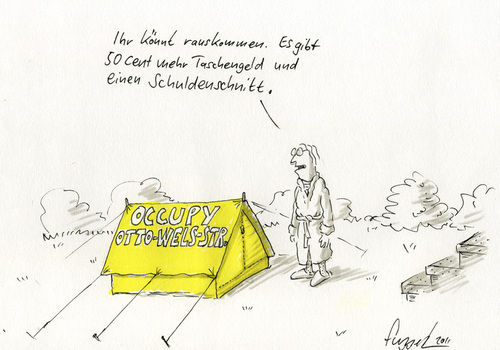 Ihr könnt rauskommen. Es gibt
50 Cent mehr Taschengeld und
einen Schuldenschnitt.
OCCUPY
OTTO-WELS-STR.
2011